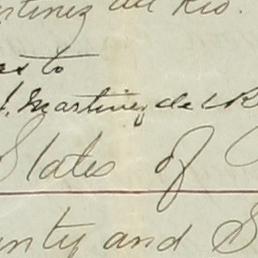 rtinez del Rio.
as to
J. Martinez del R
States of
unty and S